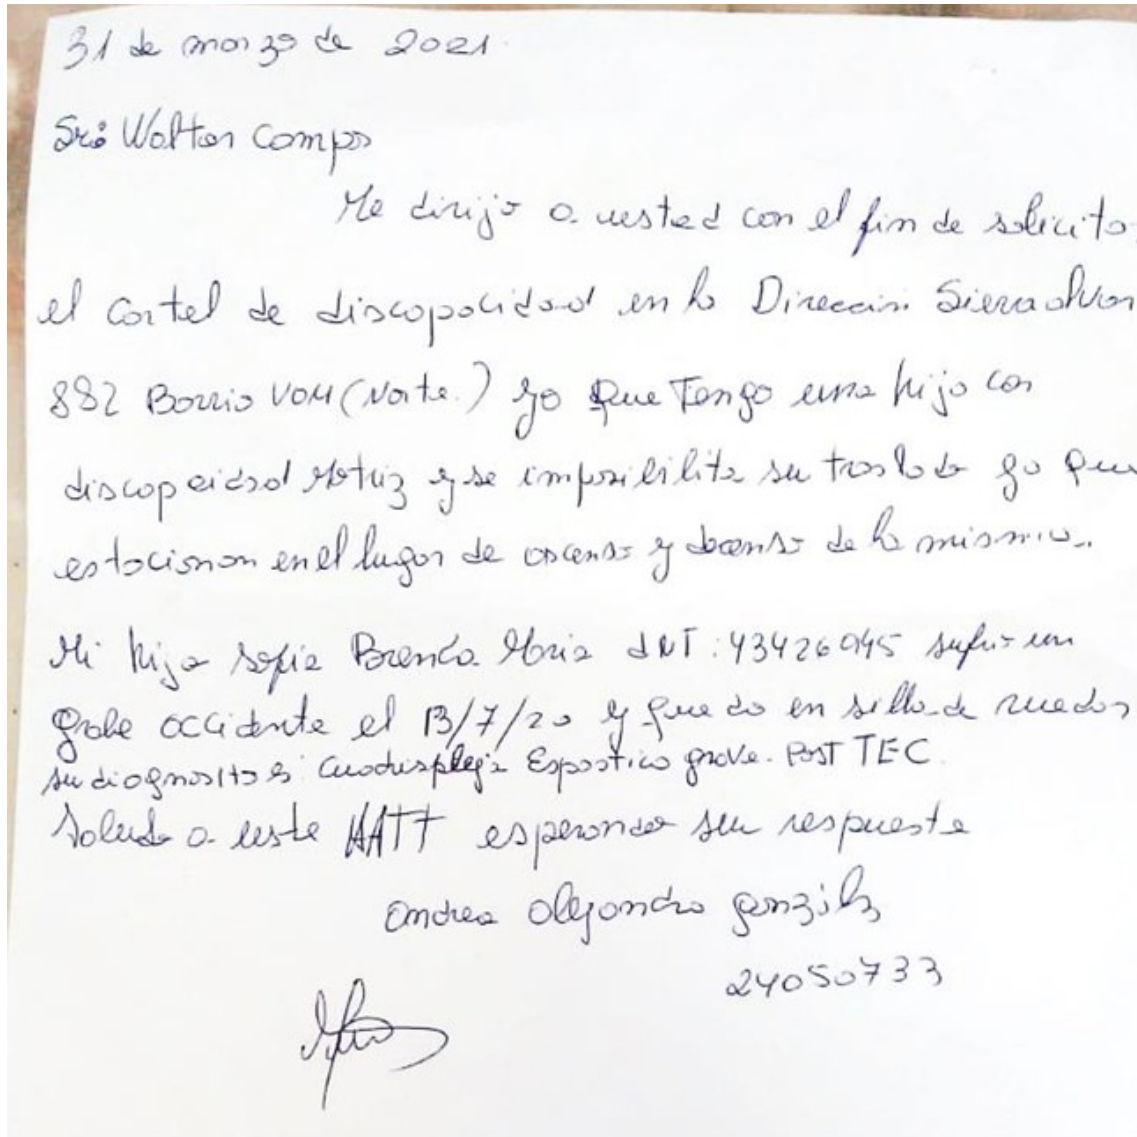 31 de marzo de 2021.
Sr: Walter Campos
Me dirijo a usted con el fin de solicita
el cartel de discapacidad en la Dirección Sierra
882 Barrio VOM (Norte.) ya que Tengo una hija con
discapacidad Motriz y se imposibilita su traslado ya que
estacionan en el lugar de ascenso y decenso de la misma..
Mi hija Sofia Brenda Maria DNI: 43426045 sufrio un
grabe accidente el 13/7/20 y quedo en silla de ruedas
su diagnostto es: Cuadrusplejia Espastica grave. POST TEC.
Saludo a uste AATT esperando su respuesta
Andrea Alejandra González
24050733